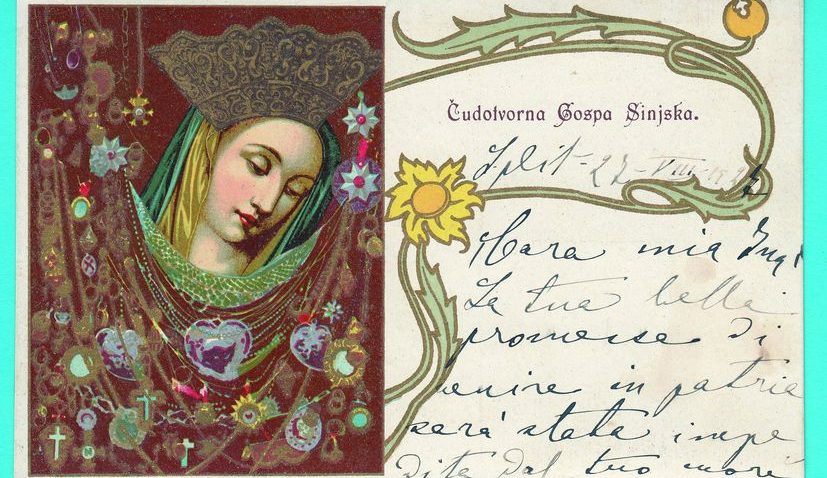 Čudotvorna Gospa Sinjska.
Split - 27 - VIII
Cara mia
La tua bella
promessa di
venire in patria
sará stata impe
dita dal tuo